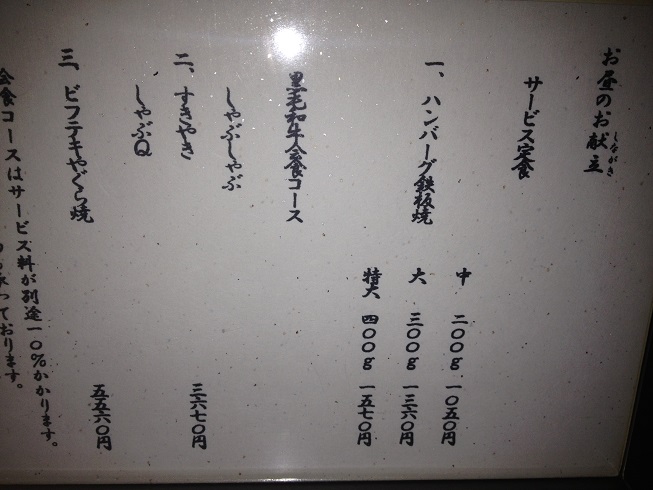 お昼のお献立
しながき
サービス定食
一、ハンバーグ鉄板焼
中 二〇〇g 一〇五〇円
大 三〇〇g 一三六〇円
特大 四〇〇g 一五七〇円
黒毛和牛会食コース
しゃぶしゃぶ
二、すきやき 三六七〇円
しゃぶQ
三、ビフテキやぐら焼 五五六〇円
会食コースはサービス料が別途一〇%かかります。
ております。